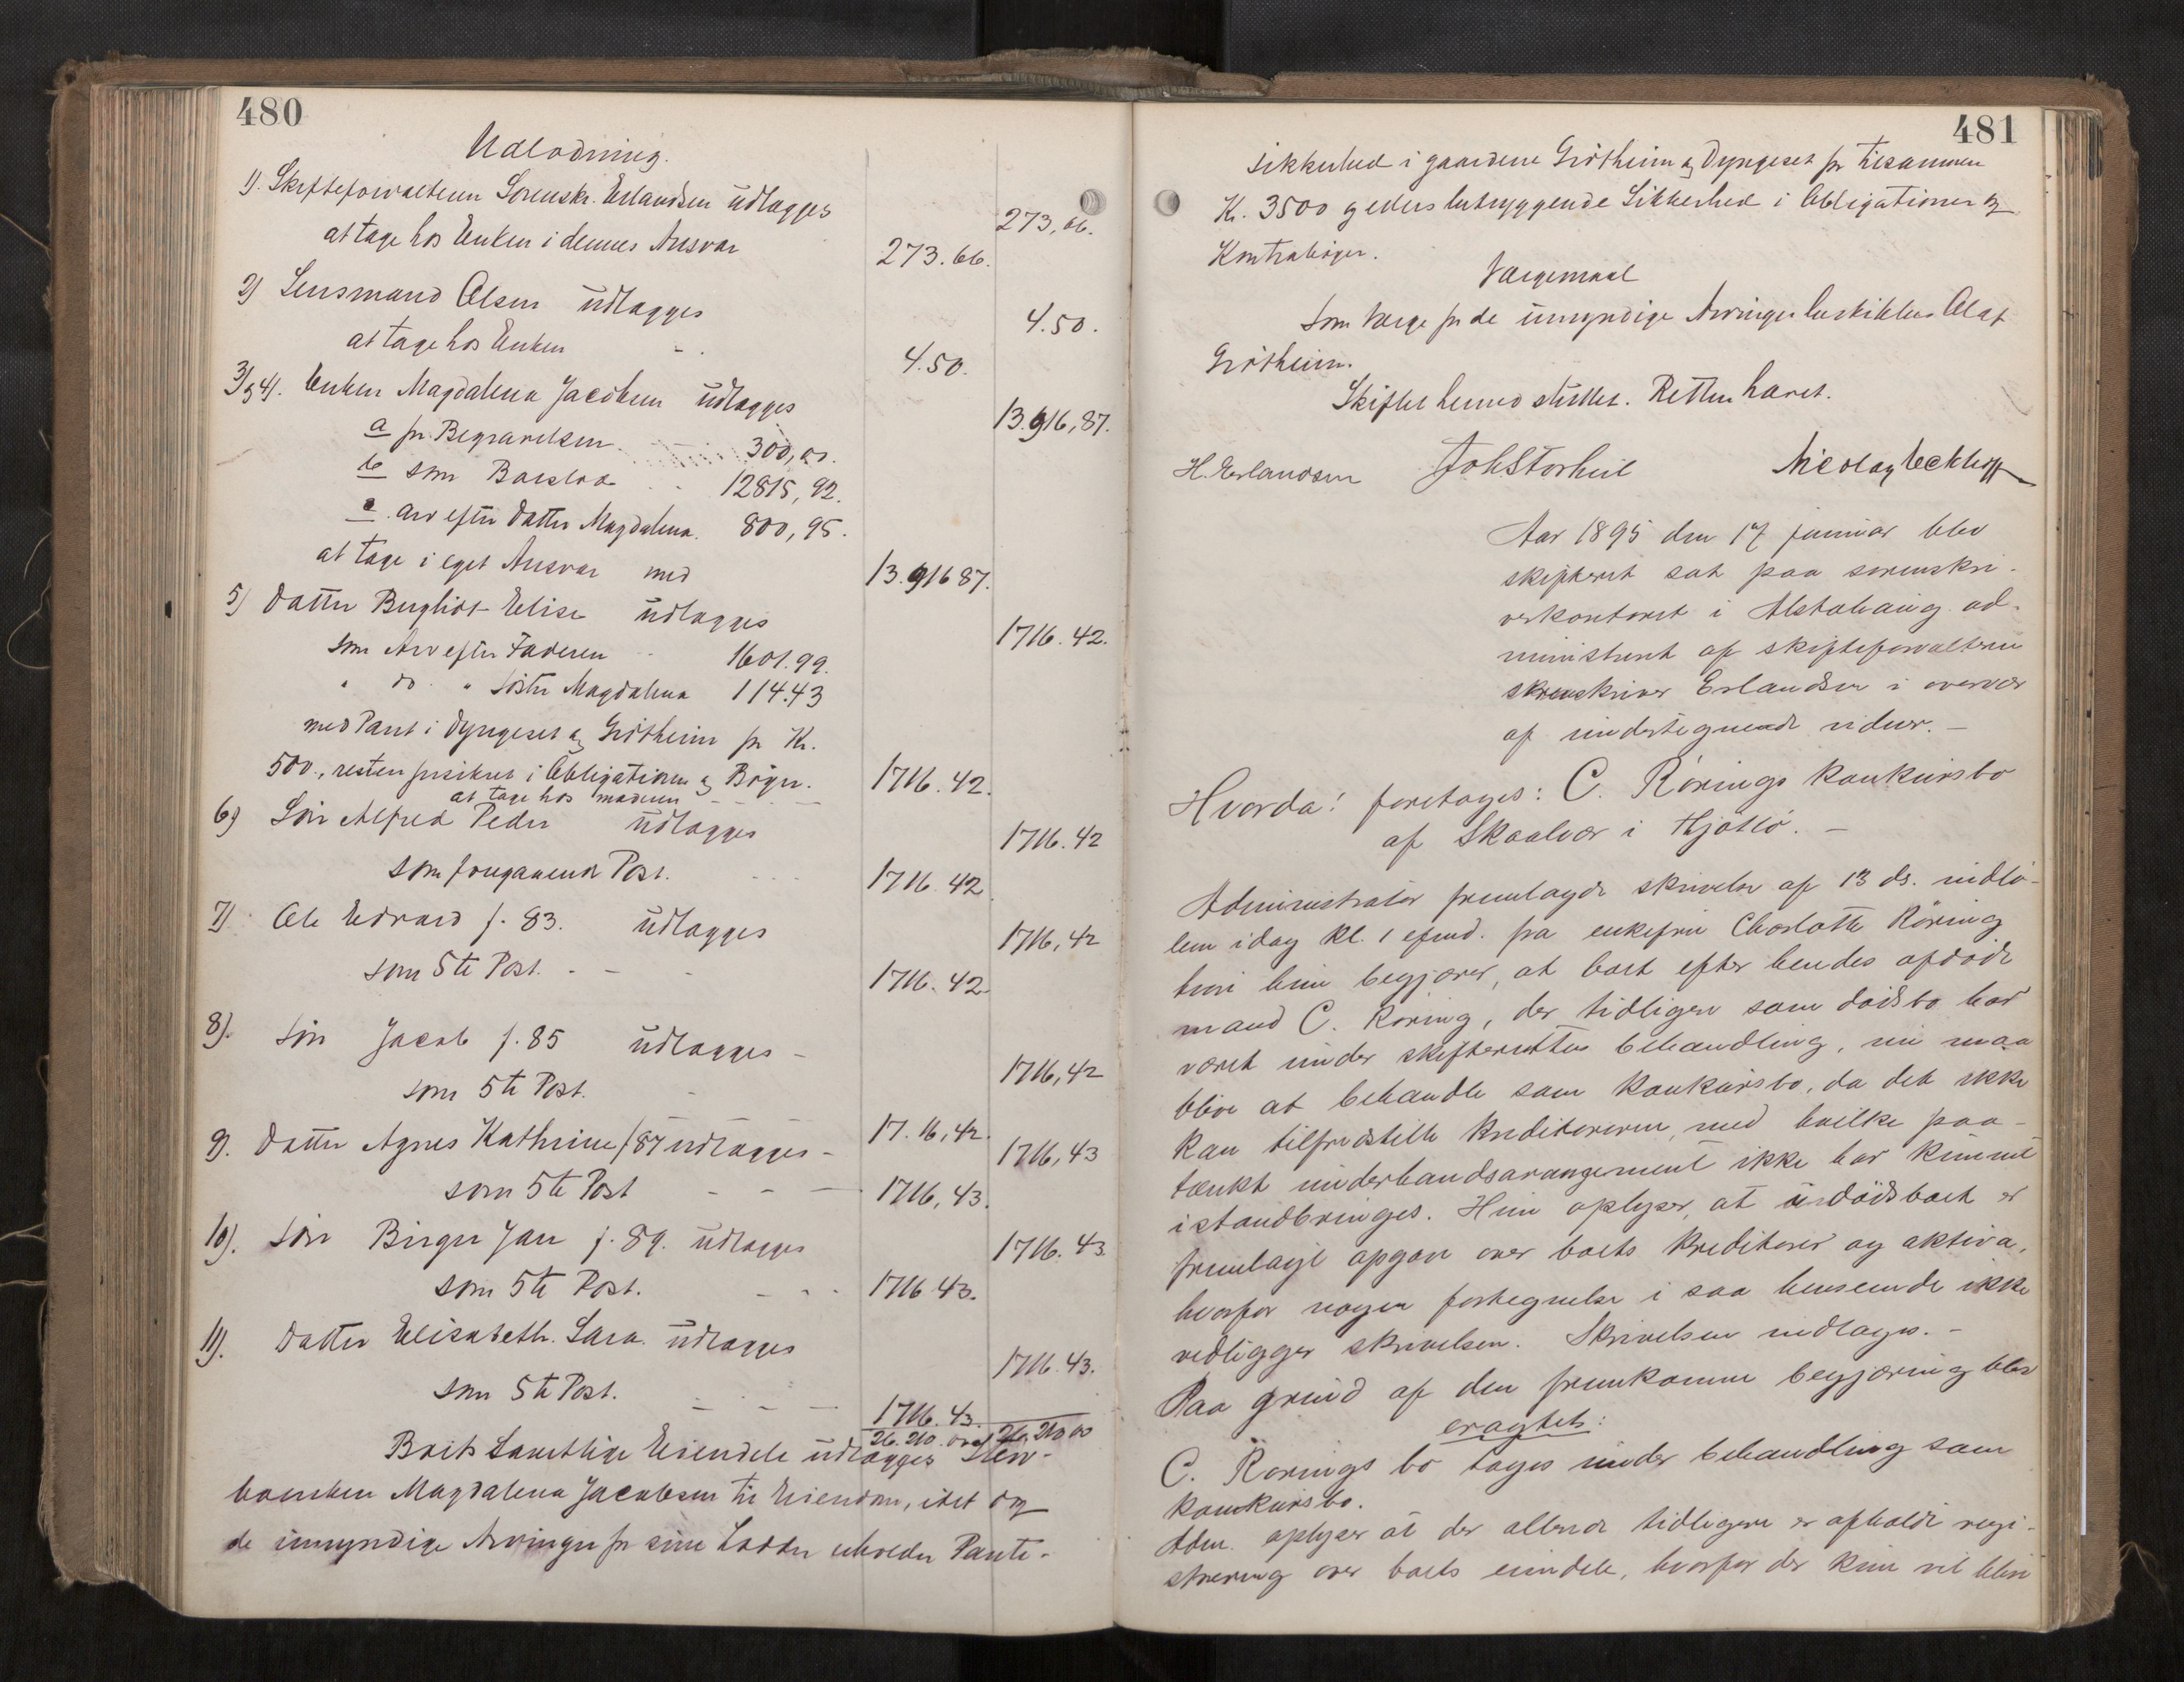 480
Udlodning.
1). Skifteforvalteren Sorenskr. Erlandsen udlægges 273,66.
at tage hos Enken i dennes Ansvar 273.66.
2) Lensmand Olsen udlægges 4.50.
at tage hos Enken - . 4.50.
3) & 4). Enken Magdalena Jacobsen udlægges 13.916,87.
a for Begravelsen 300,00.
b som Boeslod 12815,92.
c. arv efter Datter Magdalena. 800,95.
at tage i eget Ansvar med 13.916 87.
5) Datter Bergliot Elise udlægges 1716.42.
som Arv efter Faderen - 1601.99.
" do " Søster Magdalena 114.43
med Pant i Dyngeset og Grøtheim for Kr.
500., resten forsikret i Obligationer og Bøger. 1716.42.
at tage hos moderen - - - -
6) Søn Alfred Peder udlægges 1716.42
som foregaaende Post. - - - 1716.42
7) Ole Edvard f. 83. udlægges 1716,42
som 5te Post. - - - 1716.42.
8). Søn Jacob f. 85 udlægges - 1716,42
som 5te Post. - 17.16,42.
9). Datter Agnes Kathrine f 87 udlægges - 1716,43
som 5te Post - - - 1716,43.
10). Søn Birger Jan f. 89. udlægges 1716.43
som 5te Post. - - - 1716 43.
11). Datter Elisabeth. Sara. udlægges 1716.43.
som 5te Post. - - - 1716.43.
26.210.00 26.210 00
Boets Samtlige Eiendele udlægges Stærv-
boenken Magdalena Jacobsen til Eiendom, idet dog
de umyndige Arvinger for sine Lodder erholder Pante-
481
sikkerhed i gaardene Grøtheim og Dyngeset for tilsammen
Kr. 3500 og ellers betryggende Sikkerhed i Obligationer og
Kontrabøger.
Værgemaal
Som Værge for de umyndige Arvinger beskikkes Olaf
Grøtheim.
Skiftet hermed sluttet. Retten hævet.
H. Erlandsen Joh Storheil Nicolay Eckhoff
Aar 1895 den 17 januar blev
skifteret sat paa sorenskri-
verkontoret i Alstahaug ad-
ministreret af skifteforvalteren
sorenskriver Erlandsen i overvær
af undertegnende vidner. -
Hvorda! foretoges: C. Rørings konkursbo
af Skaalvær i Tjøttø. -
Administrator fremlagde skrivelse af 13 ds. indlø-
ben idag kl. 1 efmd. fra enkefru Charlotte Røring
hvori hun begjærer, at boet efter hendes afdøde
mand C. Røring, der tidligere som dødsbo har
været under skifterettens behandling, nu maa
blive at behandle som konkursbo, da det ikke
kan tilfredstille kreditorerne, med hvilke paa-
tænkt underhaandsarangement ikke har kunnet
istandbringes. Hun oplyser, at i dødsboet er
fremlagt opgave over boets kreditorer og aktiva,
hvorfor nogen fortegnelse i saa henseende ikke
vedligger skrivelsen. Skrivelsen vedlages. -
Paa grund af den fremkomne begjæring blev
eragtet:
C. Rørings bo tages under behandling som
konkursbo.
Adm. oplyser at der allerede tidligere er afholdt regi-
strering over boets eiendele, hvorfor der kun vil blive